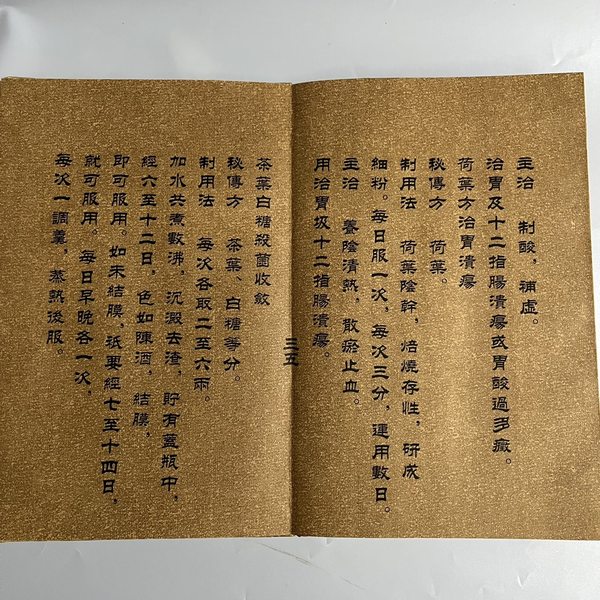 主治　制酸，補虛。
治胃及十二指腸潰瘍或胃酸過多癥。
荷葉方治胃潰瘍
秘傳方　荷葉。
制用法　荷葉陰幹，焙燒存性，研成
細粉。每日服一次，每次三分，連用數日。
主治　養陰清熱，散瘀止血。
用治胃圾十二指腸潰瘍。
三五
茶葉白糖殺菌收斂
秘傳方　茶葉、白糖等分。
制用法　每次各取二至六兩。
加水共煮數沸，沉澱去渣，貯有蓋瓶中，
經六至十二日，色如陳酒，結膜，
即可服用。如未結膜，祇要經七至十四日，
就可服用。每日早晚各一次，
每次一調羹，蒸熱後服。